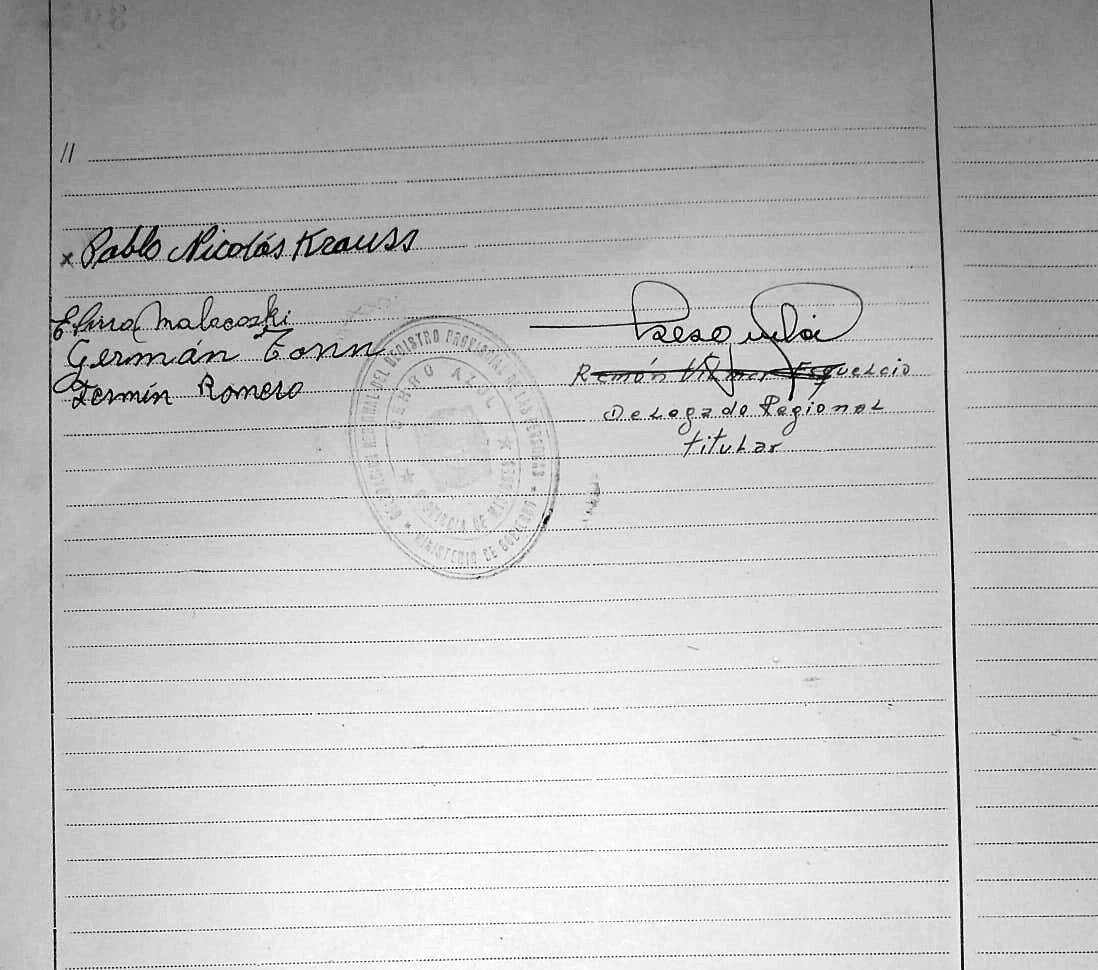 //
x Pablo Nicolás Krauss
Elma Malecoski
Germán Tonn
Fermín Romero
Ramón Vilmar Esquelcio
Delegado Regional
titular
DELEGACION REGIONAL DEL REGISTRO PROVINCIAL DE LAS PERSONAS
MINISTERIO DE GOBIERNO
CERRO AZUL
PROVINCIA DE MISIONES